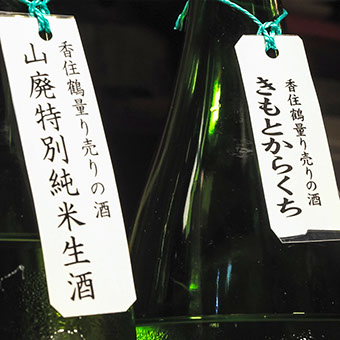 香住鶴量り売りの酒
きもとからくち
香住鶴量り売りの酒
山廃特別純米生酒